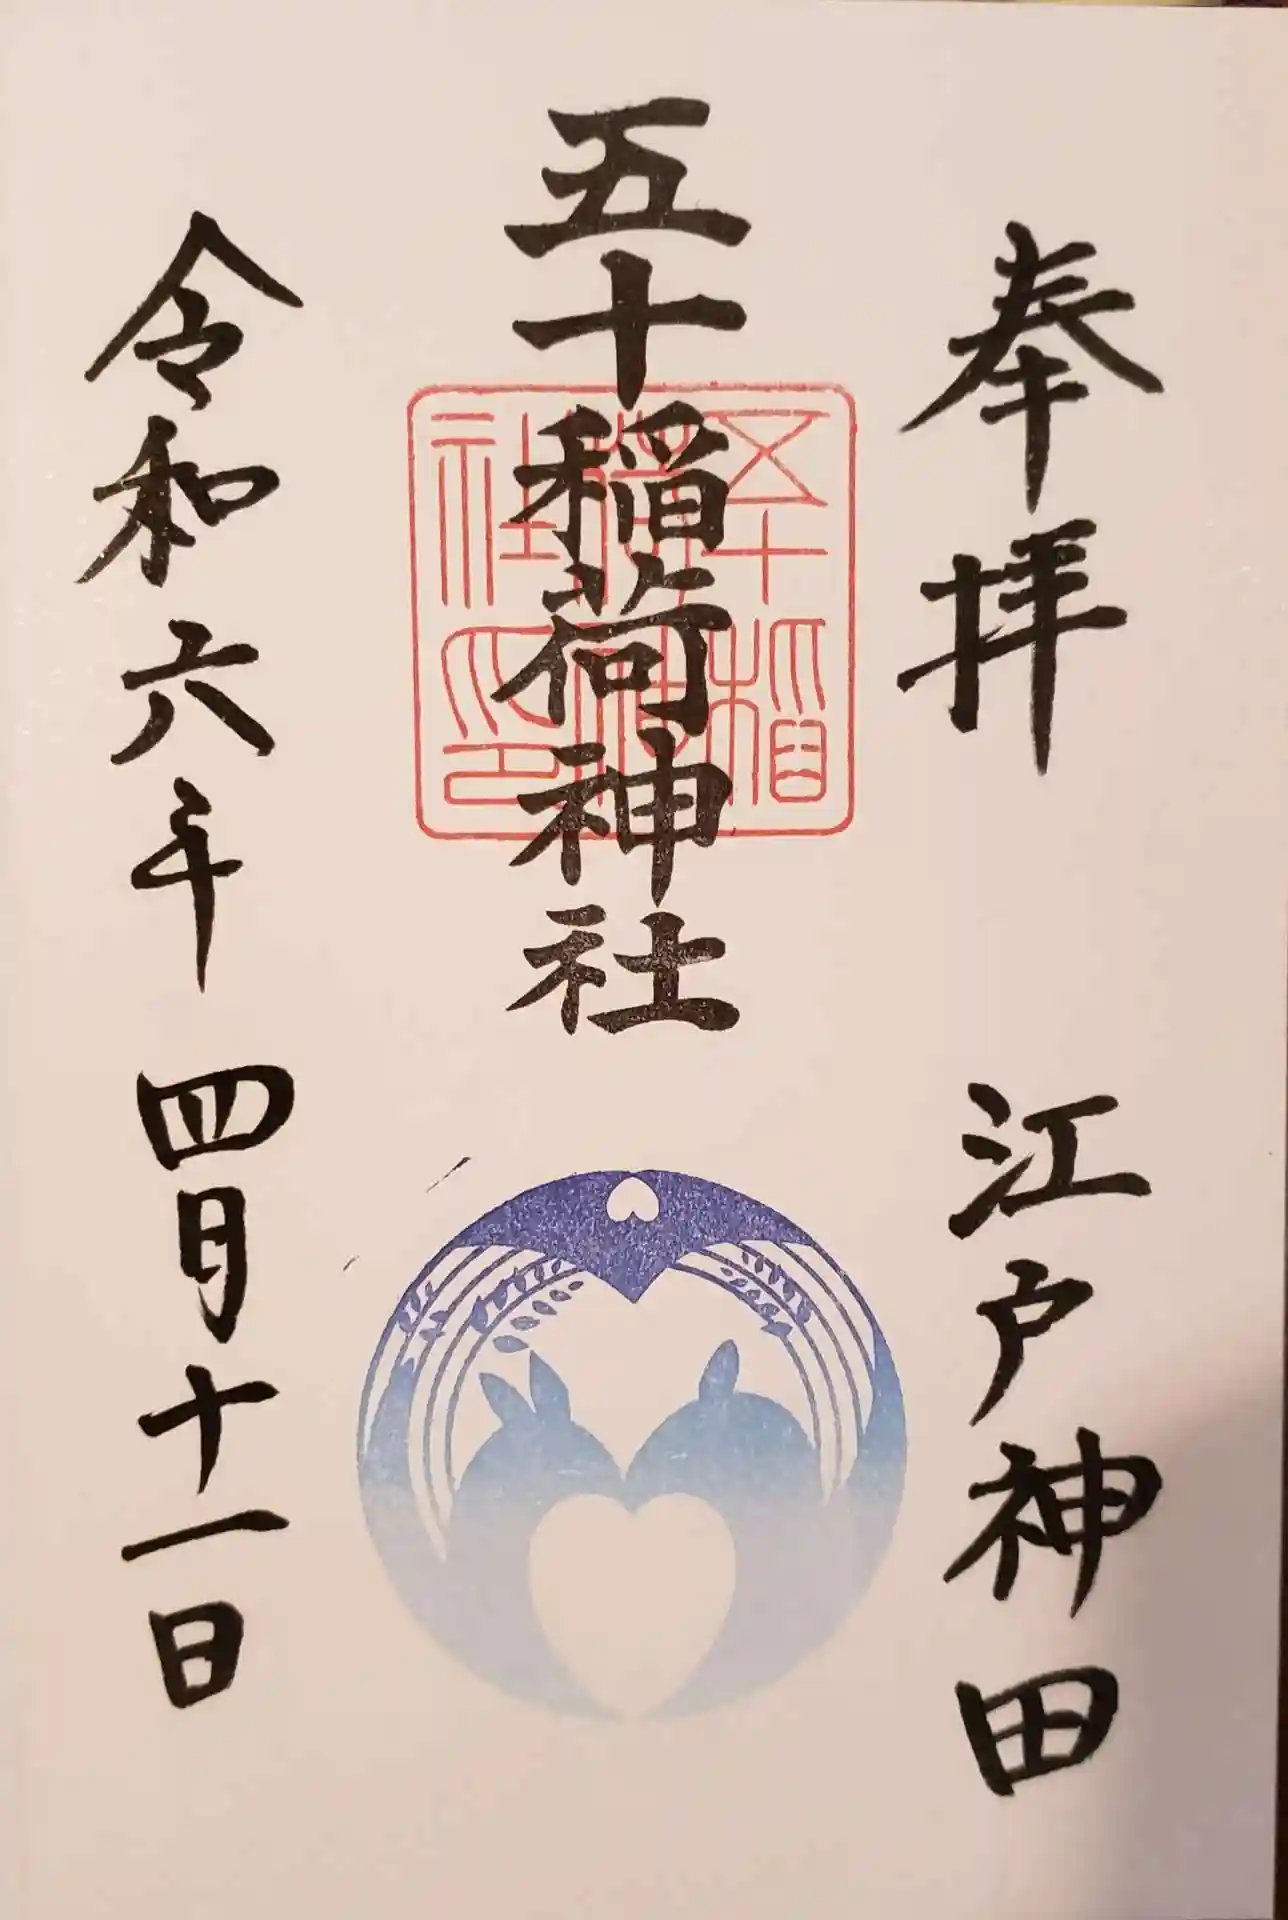 奉拝 江戸神田
五十稲荷神社
五十稲荷神社印
令和六年 四月十一日